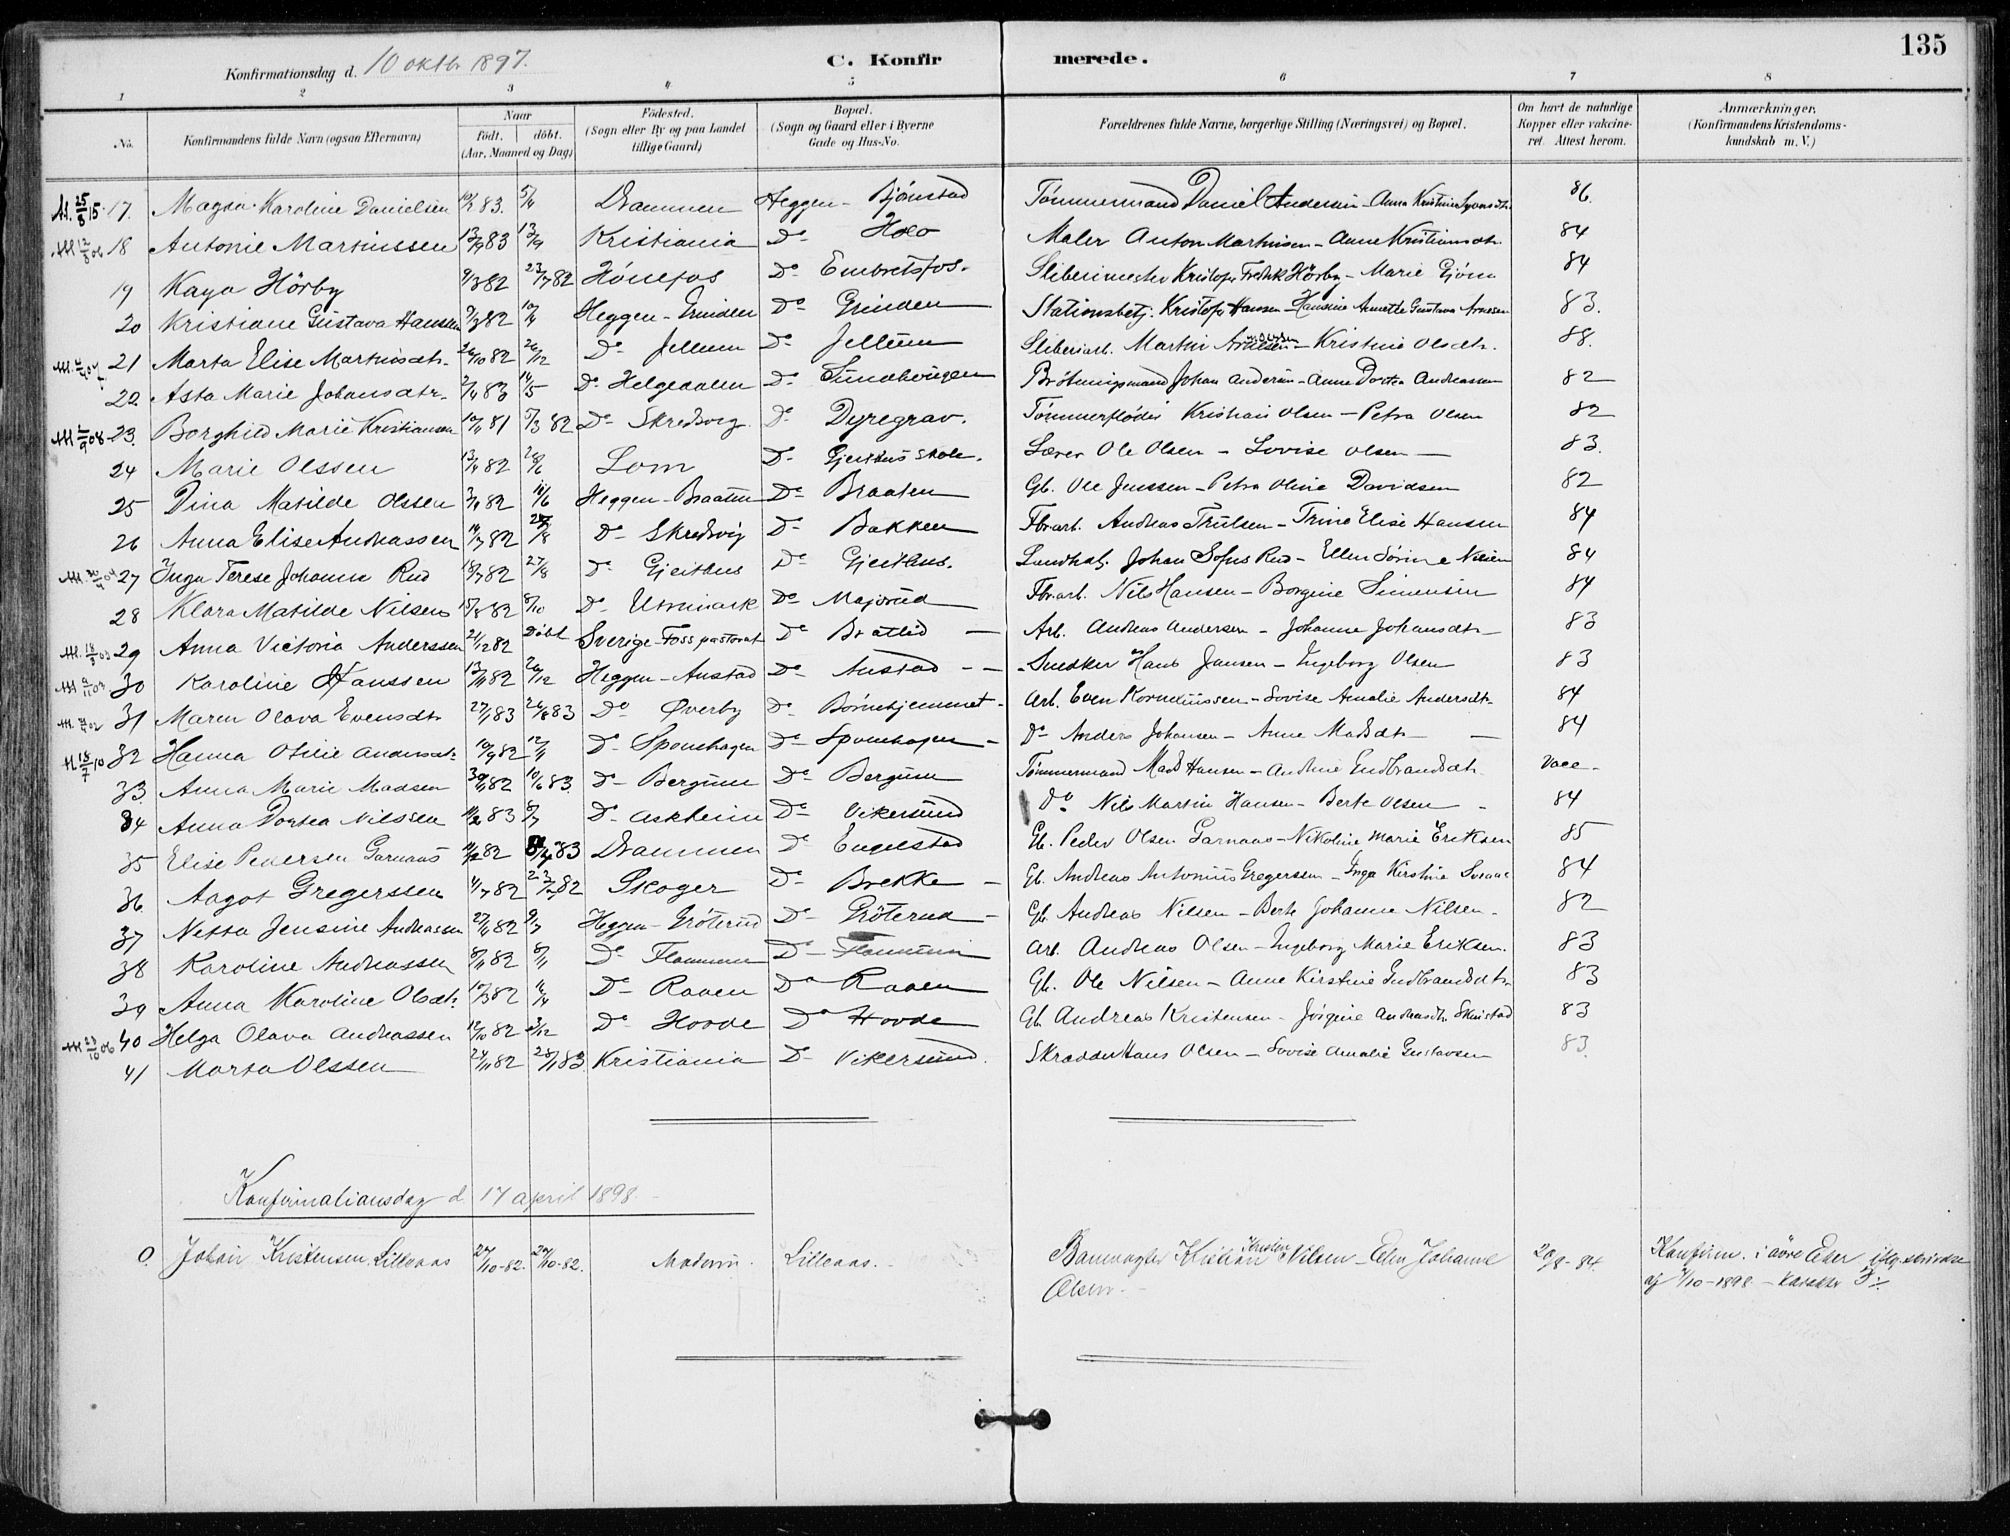 135
Konfirmationsdag d. 10 oktbr 1897. C. Konfirmerede.
1 2 3 4 5 6 7 8
No. Konfirmandens fulde Navn (ogsaa Efternavn) Naar födt. döbt. (Aar, Maaned og Dag) Födested. (Sogn eller By og paa Landet tillige Gaard) Bopæl. (Sogn og Gaard eller i Byerne Gade og Hus-No. Forældrenes fulde Navne, borgerlige Stilling (Næringsvei) og Bopæl. Om havt de naturlige Kopper eller vakcineret. Attest herom. Anmærkninger. (Konfirmandens Kristendomskundskab m. V.)
17. Magda Karoline Danielsen 83. Drammen Heggen - Bjönstad Tømmermand Daniel Andersen - Anna Kristine 86.
18 Antonie Martinssen 13/9 83 13/9 Kristiania Do Holo Maler Anton Martinsen - Anne Kristiansdtr 84
19 Kaya Hörby 9/3 82 23/7 82 Hönefos Do Embretsfos. Slibermester Kristofer Fredrik Hörby - Marie Gjörn 84
20 Kristiane Gustava Hansen 9/3 82 10/4 Heggen - Grinden Do Grinden Stationsbetj. Kristofer Hansen - Hansine Annette Gustava 83.
21 Marta Elise Martinsdtr. 26/10 82 26/12 Do Jellum Do Jellum Sliberiarb. Martin - Kristine Olsdtr. 88.
22. Asta Marie Johansdtr. 2/4 83 14/5 Do Helgedalen Do Johan Andersen - Anne Dortea Andreassen 82
23. Borghild Marie Kristiansen 10/11 81 5/3 82 Do Skredsvig Do Dyregrav. Tømmerfløder Kristian Olsen - Petra Olsen 82
24 Marie Olssen 13/4 82 26/6 Lom Do Gjeithus skole. Lærer Ole Olsen - Lovise Olsen 83.
25 Dina Matilde Olssen 3/4 82 11/6 Heggen - Braaten Do Braaten Gb. Ole Jenssen - Petra Oline Davidsen 82
26 Anna Elise Andreassen 14/7 82 Do Skredsvig Do Bakken Fbrarb. Andreas Trulsen - Trine Elise Hansen 84
27 Inga Terese Johanne Rud 18/7 82 27/8 Do Gjeithus Do Gjeithus. Landhdl. Johan Sofus Rud - Ellen Sørine Nilsen 84
28 Klara Matilde Nilsen 15/8 82 8/10 Do Do Majorud Fbrarb. Nils Hansen - Borgine Simensen 84
29 Anna Victoria Anderssen 21/12 82 Döbt Sverige - Foss pastorat Do Brattlid Arb. Andreas Andersen - Johanne Johansdtr 83
30 Karoline Hanssen 13/11 82 26/12 Heggen - Austad Do Austad Snedker Hans Jansen - Ingeborg Olsen 83
31 Maren Olava Evensdtr 27/1 83 26/8 83 Do Øverby Do Børnehjemmet Arb. Even Korneliussen - Lovise Amalie Andersdtr 84
32 Hanna Otilie Andersdtr. 10/9 82 12/11 Do Sponehagen Do Sponehagen Do Anders Johansen - Anne Madsdtr 84
33 Anna Marie Madsen 30/11 82 10/6 83. Do Bergum Do Bergum Tømmermand Mads Hansen - Andrine Endbrandsdtr. Vacc.
34 Anna Dortea Nilssen 11/2 83 8/7 Do Askheim Do Vikersund Do Nils Martin Hansen - Berte Olsen 84
35 Elise Pedersen Garnaas 82 83 Drammen Do Engelstad Gb. Peder Olsen Garnaas - Nikoline Marie Eriksen 85
36 Aagot Gregerssen 4/7 82 82 Skoger Do Brekke Gb. Andreas Antonius Gregersen - Inga Kirstine 84
37 Netta Jensine Andreassen 27/4 82 9/7 Heggen - Gröterud Do Gröterud Gb. Andreas Nilsen - Berte Johanne Nilsen. 82
38 Karoline Andreassen 8/11 82 8/11 Do Flannum Do Flannum Arb. Andreas Olsen - Ingeborg Marie Eriksen. 83
39 Anna Karoline Olsdtr. 10/3 82 16/4 Do Raaen Do Raaen Gb. Ole Nilsen - Anne Kirstine Gudbrandsdtr 83
40 Helga Olava Andreassen 12/10 82 3/12 Do Hovde Do Hovde Gb. Andreas Kristensen - Jörgine Andreasdtr. 83
41 Marta Olssen 24/11 82 28/1 83 Kristiania Do Vikersund. Skrædder Hans Olsen - Lovise Amalie Gustavsen 83.
Konfirmationsdag d. 17 april 1898.
0. Johan Kristensen Lilleaas 24/10-82. 29/10-82. Modum. Lilleaas. Banevogter Kristian Kristen Nilsen - Johanne Olsen. 20/8-84. Konfirm. i øvre Eker iflg. skrivelse
af 7/10-1898 - Karakter